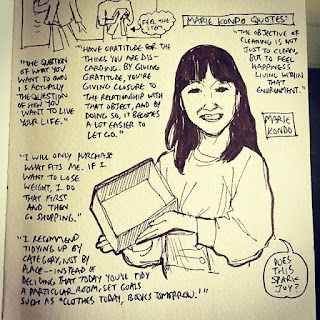 FEEL THE
ITEM
MARIE KONDO QUOTES:
"THE QUESTION
OF WHAT YOU
WANT TO OWN
IS ACTUALLY
THE QUESTION
OF HOW YOU
WANT TO LIVE
YOUR LIFE."
"HAVE GRATITUDE FOR THE
THINGS YOU ARE DIS-
CARDING. BY GIVING
GRATITUDE, YOU'RE
GIVING CLOSURE TO
THE RELATIONSHIP WITH
THAT OBJECT, AND BY
DOING SO, IT BECOMES
A LOT EASIER TO
LET GO."
"THE OBJECTIVE OF
CLEANING IS NOT
JUST TO CLEAN,
BUT TO FEEL
HAPPINESS
LIVING WITHIN
THAT
ENVIRONMENT."
MARIE
KONDO
"I WILL ONLY PURCHASE
WHAT FITS ME. IF I
WANT TO LOSE
WEIGHT, I DO
THAT FIRST
AND THEN
GO SHOPPING."
"I RECOMMEND
TIDYING UP BY
CATEGORY, NOT BY
PLACE—INSTEAD OF
DECIDING THAT TODAY YOU'LL TIDY
A PARTICULAR ROOM, SET GOALS
SUCH AS 'CLOTHES TODAY, BOOKS TOMORROW.'"
DOES
THIS
SPARK
JOY?